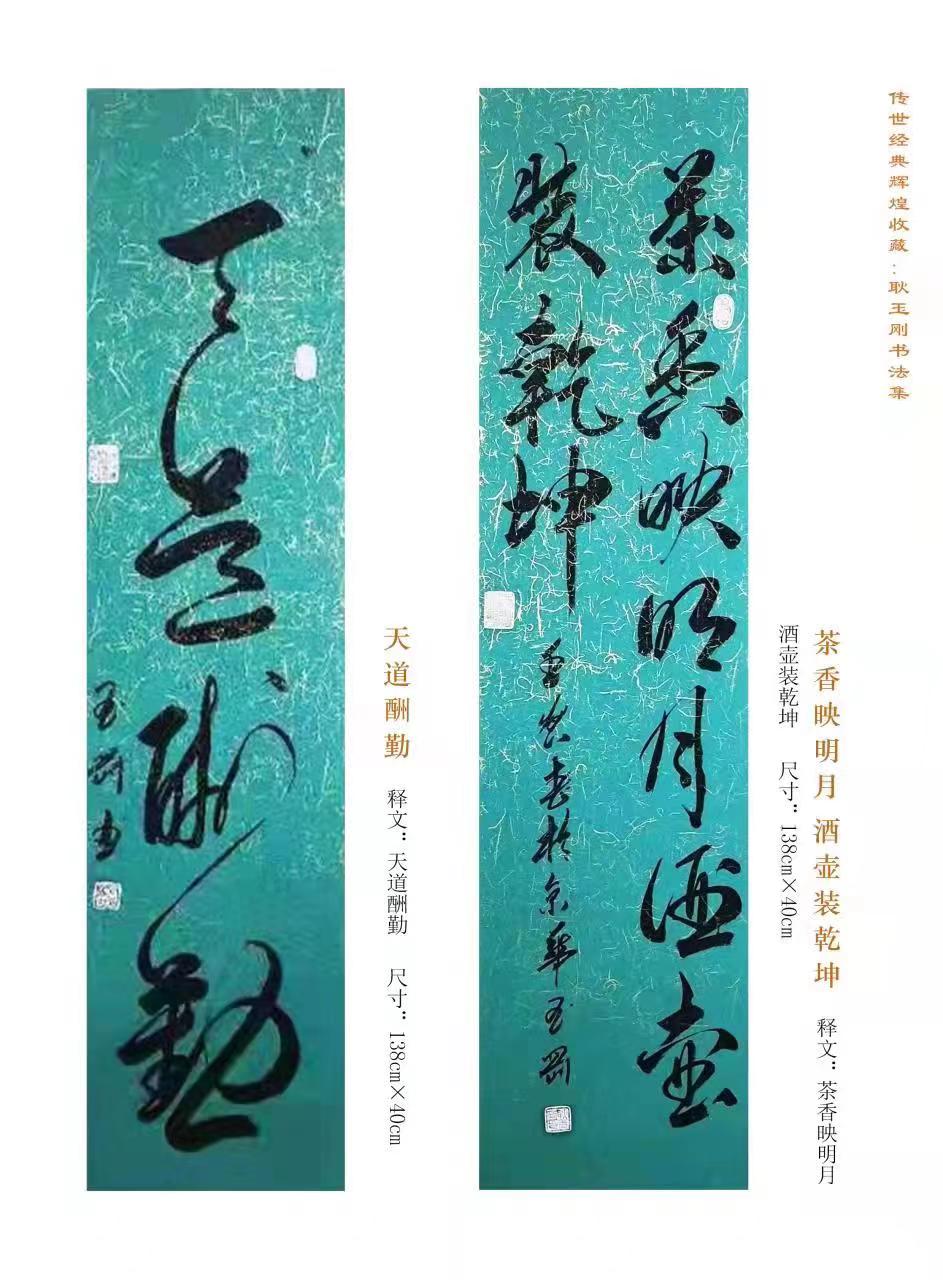 传世经典辉煌收藏：耿玉刚书法集
茶香映明月酒壶
装乾坤
春于京华玉刚
茶香映明月 酒壶装乾坤 释文：茶香映明月
酒壶装乾坤 尺寸：138cm×40cm
天道酬勤
玉刚书
天道酬勤 释文：天道酬勤 尺寸：138cm×40cm